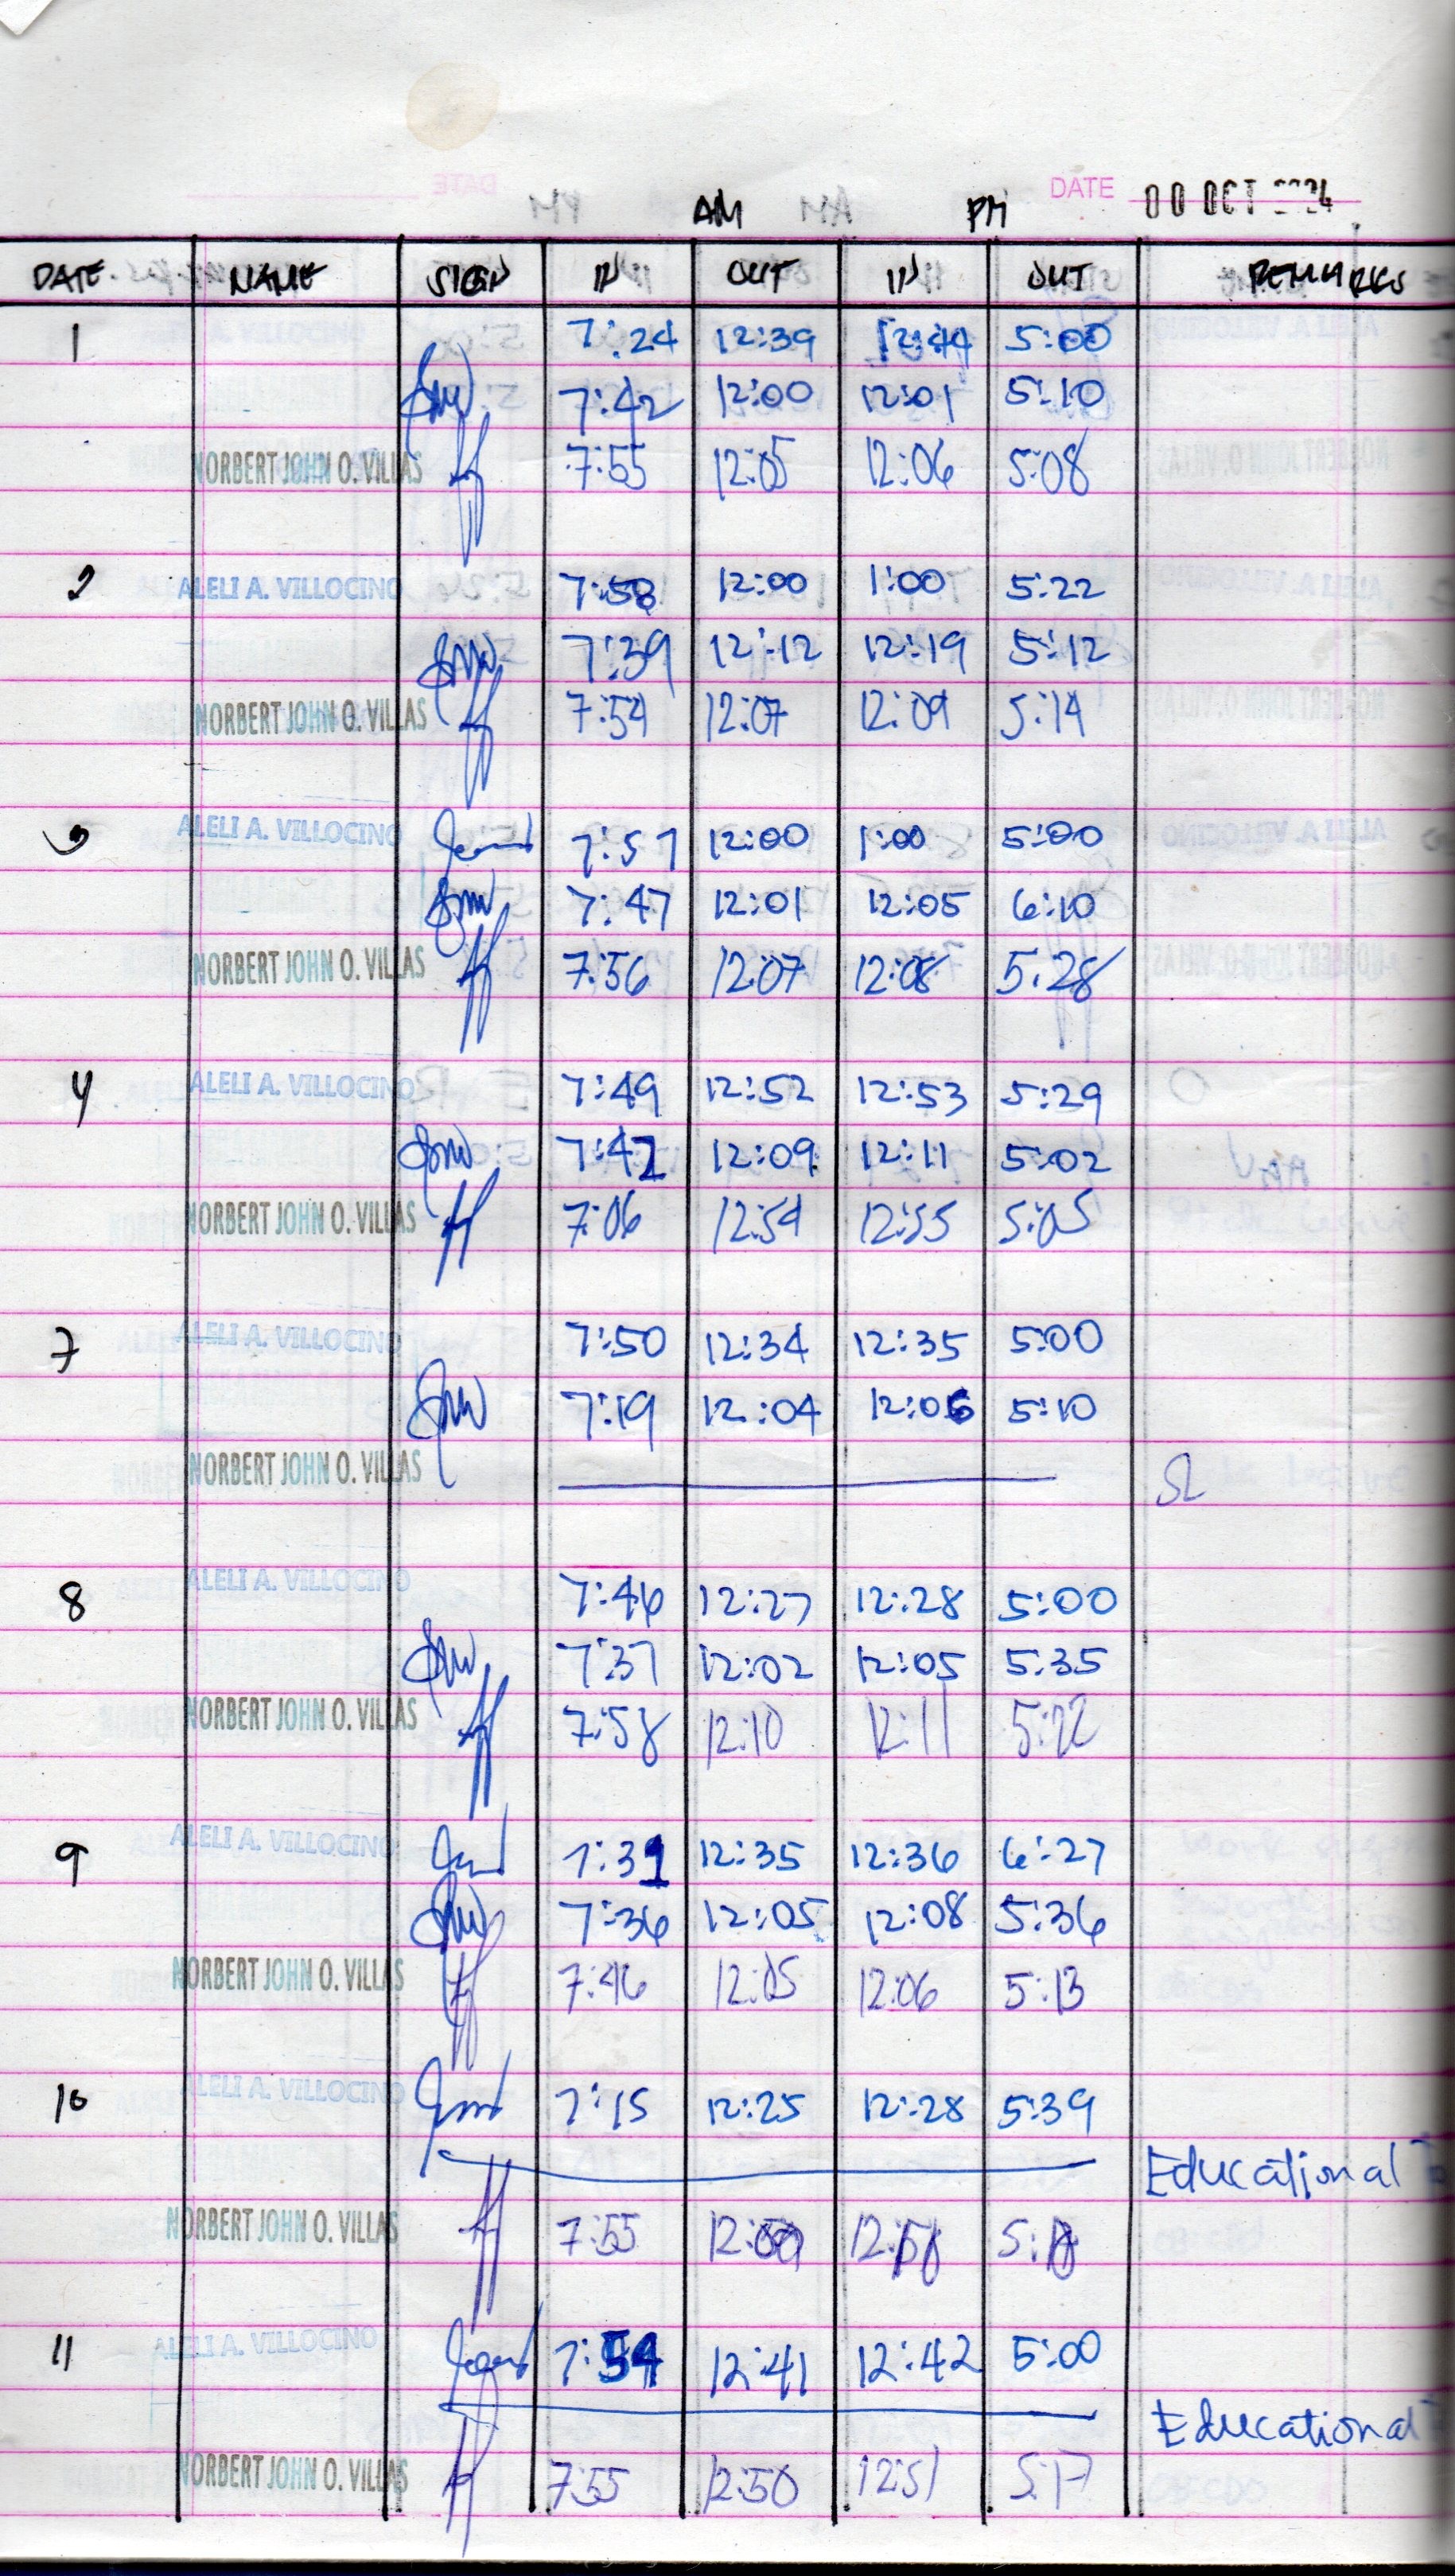 DATE 00 OCT
AM PM
DATE NAME SIGN IN OUT IN OUT REMARKS
1 7:24 12:39 12:44 5:00
7:42 12:00 12:01 5:10
NORBERT JOHN O. VILLAS 7:55 12:05 12:06 5:08
2 ALELI A. VILLOCINO 7:58 12:00 1:00 5:22
7:39 12:12 12:19 5:12
NORBERT JOHN O. VILLAS 7:54 12:07 12:09 5:14
3 ALELI A. VILLOCINO 7:57 12:00 1:00 5:00
7:47 12:01 12:05 6:10
NORBERT JOHN O. VILLAS 7:56 12:07 12:08 5:28
4 ALELI A. VILLOCINO 7:49 12:52 12:53 5:29
7:42 12:09 12:11 5:02
NORBERT JOHN O. VILLAS 7:06 12:54 12:55 5:05
7 ALELI A. VILLOCINO 7:50 12:34 12:35 5:00
7:19 12:04 12:06 5:10
NORBERT JOHN O. VILLAS SL
8 ALELI A. VILLOCINO 7:46 12:27 12:28 5:00
7:37 12:02 12:05 5:35
NORBERT JOHN O. VILLAS 7:58 12:10 12:11 5:22
9 ALELI A. VILLOCINO 7:31 12:35 12:36 6:27
7:36 12:05 12:08 5:36
NORBERT JOHN O. VILLAS 7:46 12:05 12:06 5:13
10 ALELI A. VILLOCINO 7:15 12:25 12:28 5:39
Educational
NORBERT JOHN O. VILLAS 7:55
11 ALELI A. VILLOCINO 7:54 12:41 12:42 5:00
Educational
NORBERT JOHN O. VILLAS 7:55 12:50 12:51 5:17